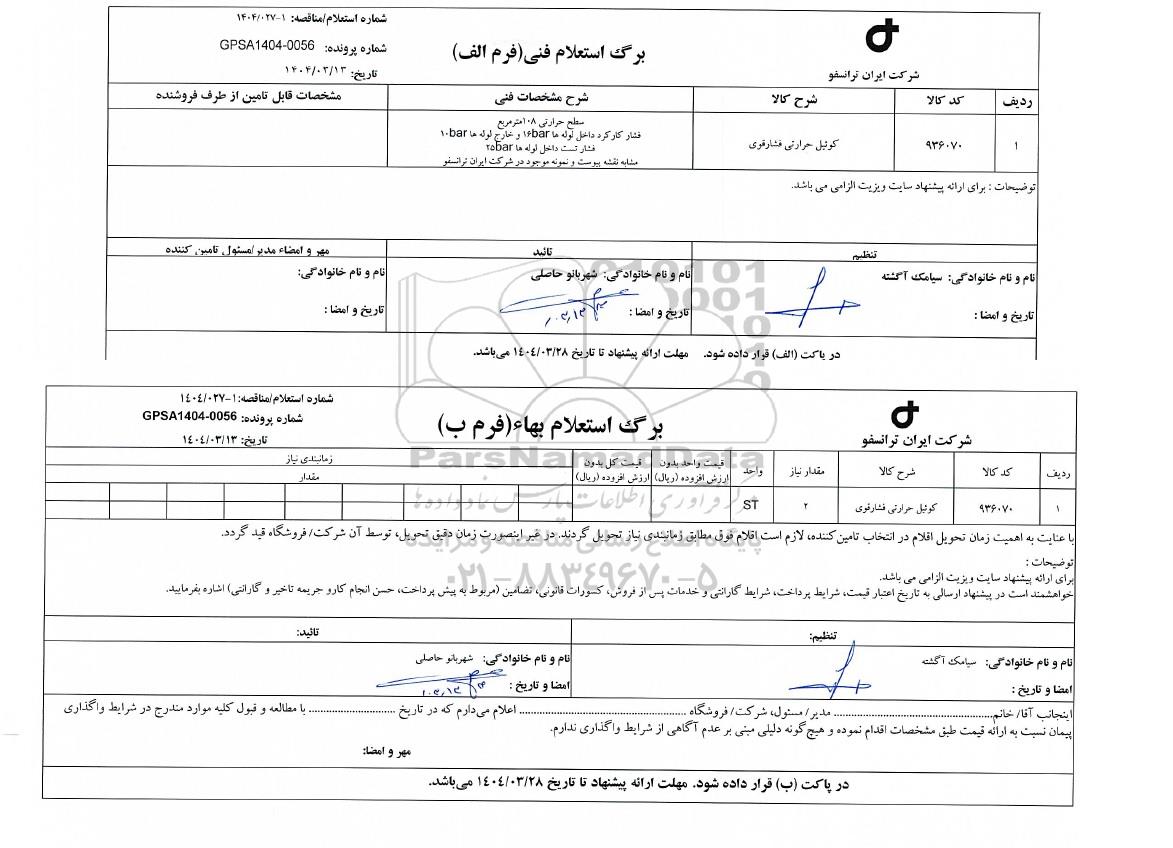 شماره استعلام/مناقصه: ۱-۱۴۰۴/۰۲۷
برگ استعلام فنی(فرم الف)
شماره پرونده: GPSA1404-0056
تاریخ: ۱۴۰۴/۰۳/۱۳
شرکت ایران ترانسفو
ردیف کد کالا شرح کالا شرح مشخصات فنی مشخصات قابل تامین از طرف فروشنده
۱ ۹۳۶۰۷۰ کوئیل حرارتی فشارقوی
سطح حرارتی ۱۰۸مترمربع
فشار کارکرد داخل لوله ها ۱۶bar و خارج لوله ها ۱۰bar
فشار تست داخل لوله ها ۲۵bar
مشابه نقشه پیوست و نمونه موجود در شرکت ایران ترانسفو
توضیحات : برای ارائه پیشنهاد سایت ویزیت الزامی می باشد.
تنظیم تائید مهر و امضاء مدیر/مسئول تامین کننده
نام و نام خانوادگی: سیامک آگشته نام و نام خانوادگی: شهربانو حاصلی نام و نام خانوادگی:
تاریخ و امضا : تاریخ و امضا : تاریخ و امضا :
در پاکت (الف) قرار داده شود. مهلت ارائه پیشنهاد تا تاریخ ۱۴۰۴/۰۳/۲۸ می‌باشد.
شماره استعلام/مناقصه:۱-۱۴۰۴/۰۲۷
برگ استعلام بهاء(فرم ب)
شماره پرونده: GPSA1404-0056
تاریخ: ۱۴۰۴/۰۳/۱۳
شرکت ایران ترانسفو
ردیف کد کالا شرح کالا مقدار نیاز واحد قیمت واحد بدون ارزش افزوده (ریال) قیمت کل بدون ارزش افزوده (ریال) زمانبندی نیاز
مقدار
۱ ۹۳۶۰۷۰ کوئیل حرارتی فشارقوی ۲ ST
با عنایت به اهمیت زمان تحویل اقلام در انتخاب تامین‌کننده، لازم است اقلام فوق مطابق زمانبندی نیاز تحویل گردند. در غیر اینصورت زمان دقیق تحویل، توسط آن شرکت/ فروشگاه قید گردد.
توضیحات :
برای ارائه پیشنهاد سایت ویزیت الزامی می باشد.
خواهشمند است در پیشنهاد ارسالی به تاریخ اعتبار قیمت، شرایط پرداخت، شرایط گارانتی و خدمات پس از فروش، کسورات قانونی، تضامین (مربوط به پیش پرداخت، حسن انجام کارو جریمه تاخیر و گارانتی) اشاره بفرمایید.
تنظیم: تائید:
نام و نام خانوادگی: سیامک آگشته نام و نام خانوادگی: شهربانو حاصلی
امضا و تاریخ : امضا و تاریخ :
اینجانب آقا/ خانم........ مدیر/ مسئول، شرکت/ فروشگاه ........ اعلام می‌دارم که در تاریخ ........ با مطالعه و قبول کلیه موارد مندرج در شرایط واگذاری
پیمان نسبت به ارائه قیمت طبق مشخصات اقدام نموده و هیچ‌گونه دلیلی مبنی بر عدم آگاهی از شرایط واگذاری ندارم.
مهر و امضا:
در پاکت (ب) قرار داده شود. مهلت ارائه پیشنهاد تا تاریخ ۱۴۰۴/۰۳/۲۸ می‌باشد.
ParsNamadData
مرکز فرآوری اطلاعات پارس نماد داده ها
پایگاه اطلاع رسانی مناقصه و مزایده
۰۲۱-۸۸۳۴۹۶۷۰-۵